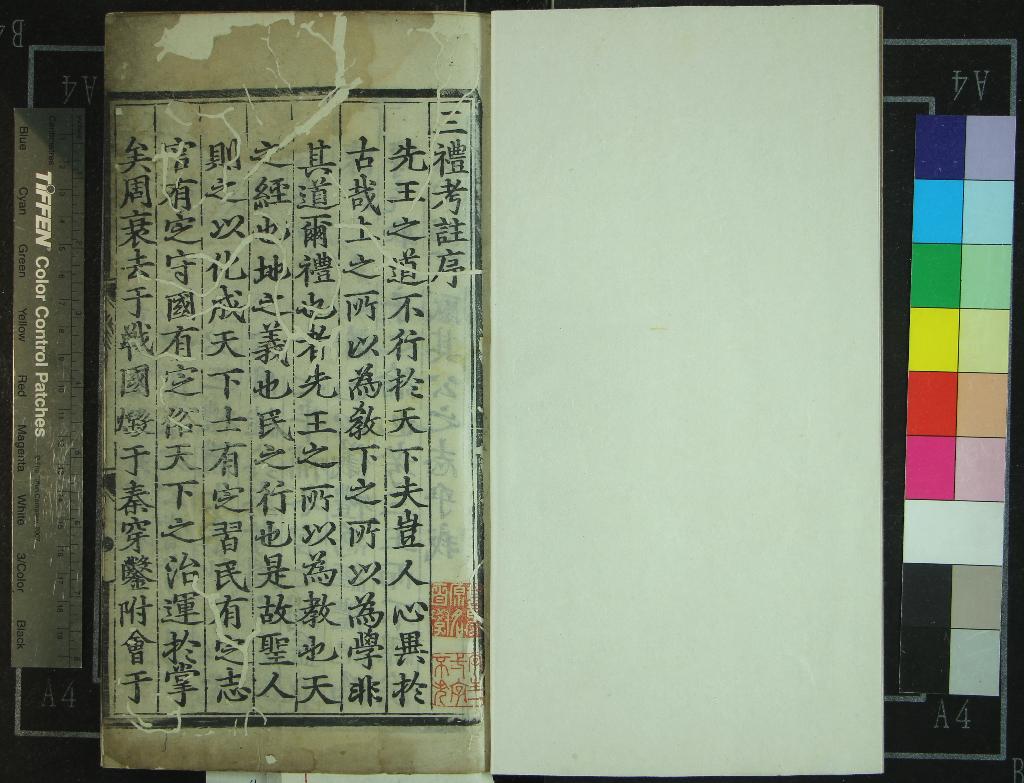 三禮考註序
先王之道不行於天下夫豈人心異於
古哉上之所以為教下之所以為學非
其道爾禮也者先王之所以為教也天
之經也地之義也民之行也是故聖人
則之以化成天下士有定習民有定志
官有定守國有定俗天下之治運於掌
矣周衰去于戰國燬于秦穿鑿附會于
TIFFEN Color Control Patches
Blue Cyan Green Yellow Red Magenta White 3/Color Black
Centimetres
A4
A4
A4
A4